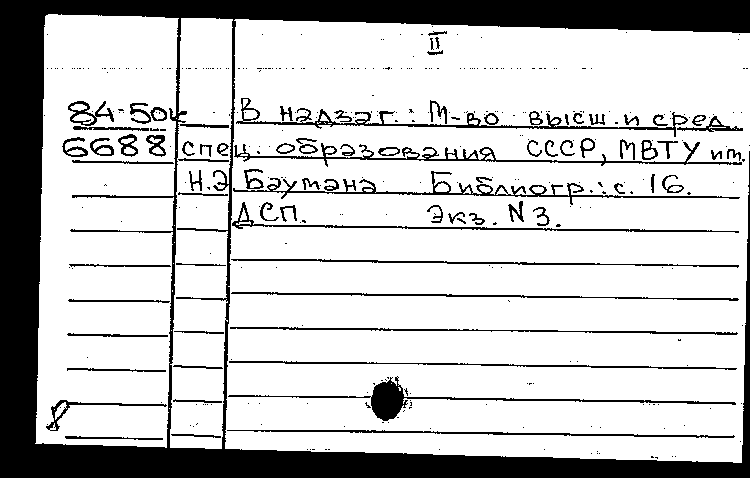 II
84-50к В надзаг.: М-во высш. и сред.
6688 спец. образования СССР, МВТУ им.
Н.Э Баумана. Библиогр.: с. 16.
ДСП. Экз. N 3.
8